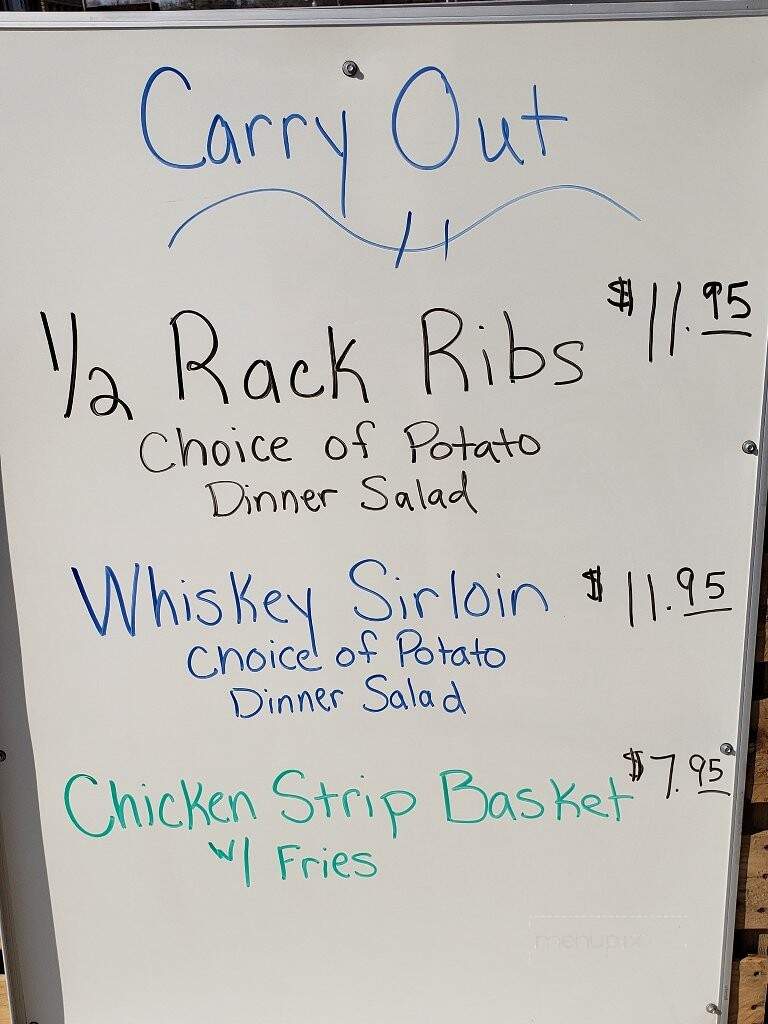 Carry Out
1/2 Rack Ribs $11.95
Choice of Potato
Dinner Salad
Whiskey Sirloin $11.95
Choice of Potato
Dinner Salad
Chicken Strip Basket $7.95
w/ Fries
menupix